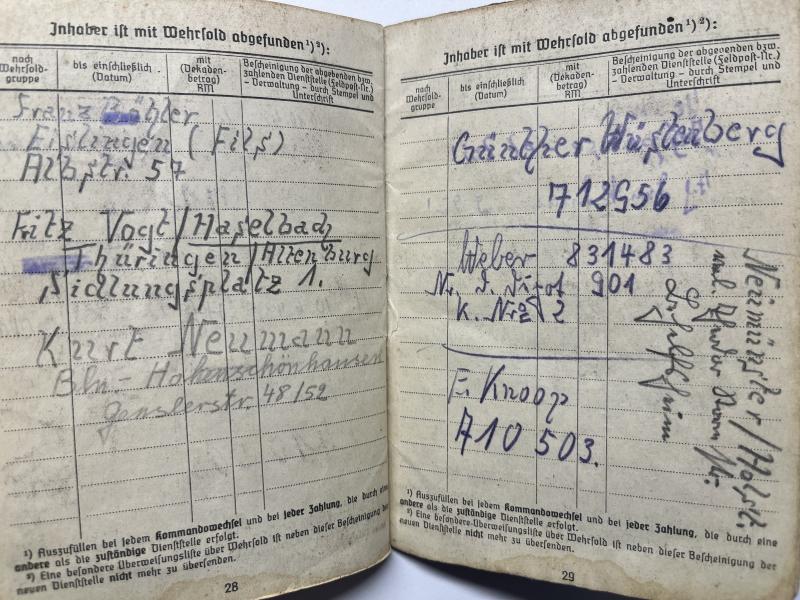 Inhaber ist mit Wehrsold abgefunden ¹) ²):
nach Wehrsold-
gruppe
bis einschließlich
(Datum)
mit
(Dekaden-
betrag)
RM
Bescheinigung der abgebenden bzw.
zahlenden Dienststelle (Feldpost-Nr.)
– Verwaltung – durch Stempel und
Unterschrift
Franz
Eislingen (Fils)
Albstr. 57
Fritz Vogt / Haselbach
Thüringen / Altenburg
Sidlungsplatz 1.
Kurt Neumann
Bln - Hohenschönhausen
Genslerstr. 48/52
¹) Auszufüllen bei jedem Kommandowechsel und bei jeder Zahlung, die durch eine
andere als die zuständige Dienststelle erfolgt.
²) Eine besondere Überweisungsliste über Wehrsold ist neben dieser Bescheinigung der
neuen Dienststelle nicht mehr zu übersenden.
28
Inhaber ist mit Wehrsold abgefunden ¹) ²):
nach
Wehrsold-
gruppe
bis einschließlich
(Datum)
mit
(Dekaden-
betrag)
RM
Bescheinigung der abgebenden bzw.
zahlenden Dienststelle (Feldpost-Nr.)
– Verwaltung – durch Stempel und
Unterschrift
Günther Wüstenberg
712956
Weber 831483
901
2
E. Knoop
710 503.
Neumünster / Holst.
¹) Auszufüllen bei jedem Kommandowechsel und bei jeder Zahlung, die durch eine
andere als die zuständige Dienststelle erfolgt.
²) Eine besondere Überweisungsliste über Wehrsold ist neben dieser Bescheinigung der
neuen Dienststelle nicht mehr zu übersenden.
29